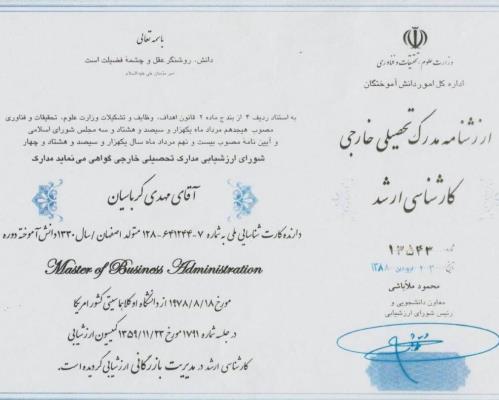 باسمه تعالی
دانش، روشنگر عقل و چشمهٔ فضیلت است
امیر مؤمنان علی علیه‌السلام
وزارت علوم، تحقیقات و فناوری
اداره کل امور دانش آموختگان
ارزشنامه مدرک تحصیلی خارجی
کارشناسی ارشد
به استناد ردیف ۴ از بند ج ماده ۲ قانون اهداف، وظایف و تشکیلات وزارت علوم، تحقیقات و فناوری
مصوب هیجدهم مرداد ماه یکهزار و سیصد و هشتاد و سه مجلس شورای اسلامی
و آیین نامه مصوب بیست و نهم مرداد ماه سال یکهزار و سیصد و هشتاد و چهار
شورای ارزشیابی مدارک تحصیلی خارجی گواهی می‌نماید مدارک
آقای مهدی کرباسیان
دارنده کارت شناسایی ملی به شماره ۷-۶۴۱۲۴۴-۱۲۸ متولد اصفهان / سال ۱۳۳۰ دانش آموخته دوره
Master of Business Administration
مورخ ۱۹۷۸/۸/۱۸ از دانشگاه اوکلاهماسیتی کشور امریکا
در جلسه شماره ۱۷۹۱ مورخ ۱۳۵۹/۱۱/۲۳ کمیسیون ارزشیابی
کارشناسی ارشد در مدیریت بازرگانی ارزشیابی گردیده است.
۱۳۵۴۳
محمود ملاباشی
معاون دانشجویی و
رئیس شورای ارزشیابی